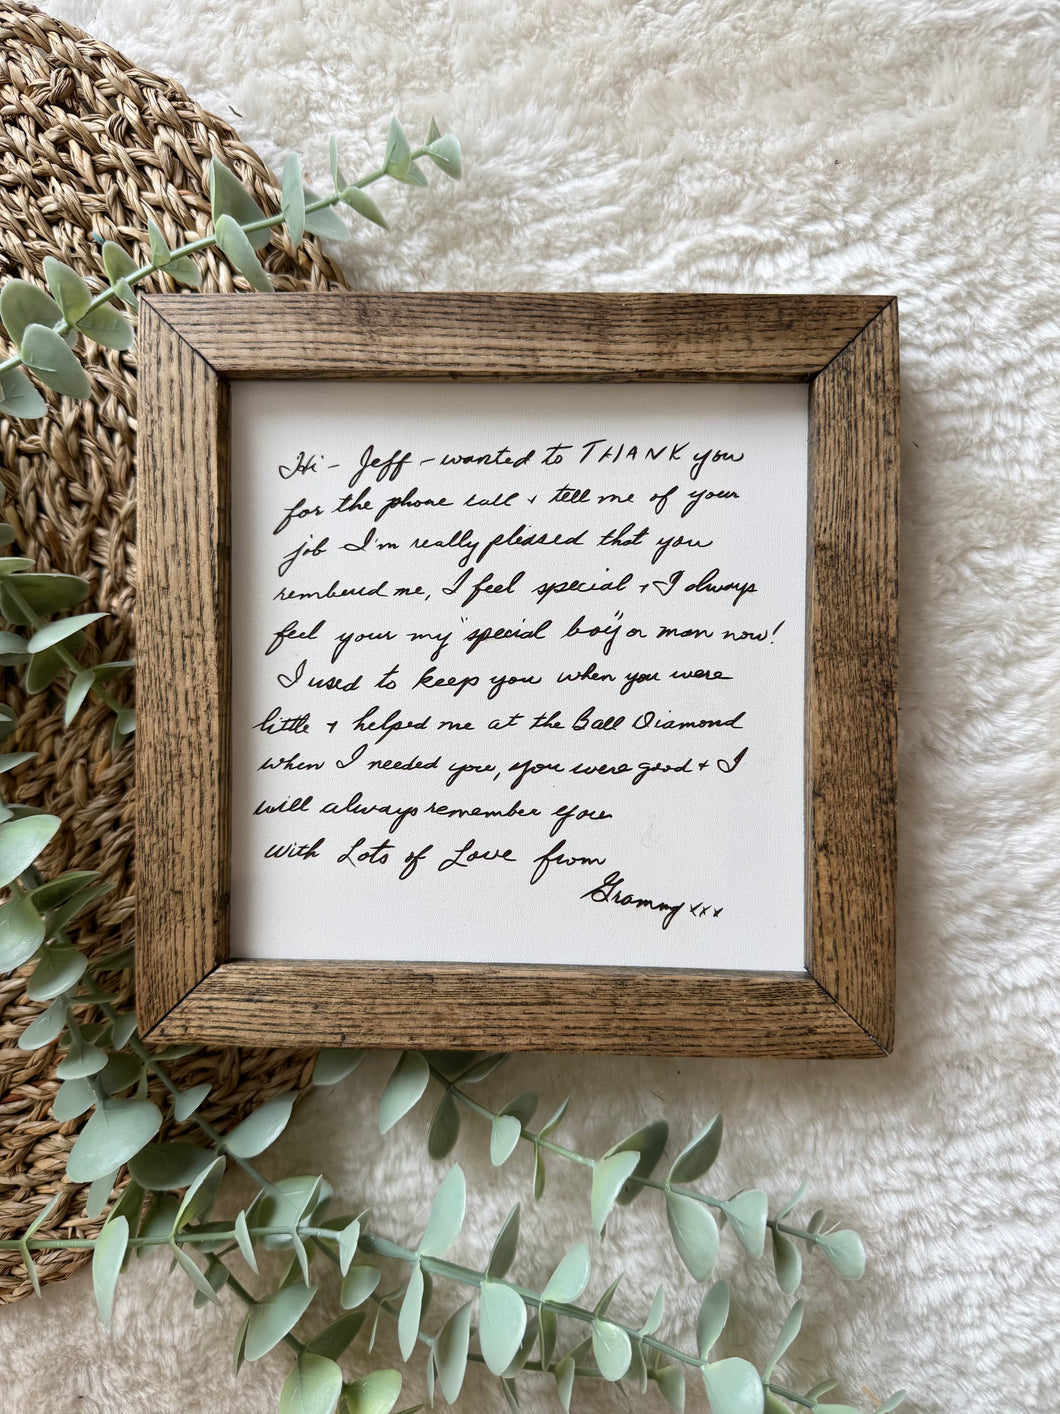 Hi - Jeff - wanted to THANK you
for the phone call + tell me of your
job I'm really pleased that you
rembered me, I feel special + I always
feel your my "special boy" or man now!
I used to keep you when you were
little + helped me at the Ball Diamond
when I needed you, you were good + I
will always remember you
with Lots of Love from
Grammy xxx